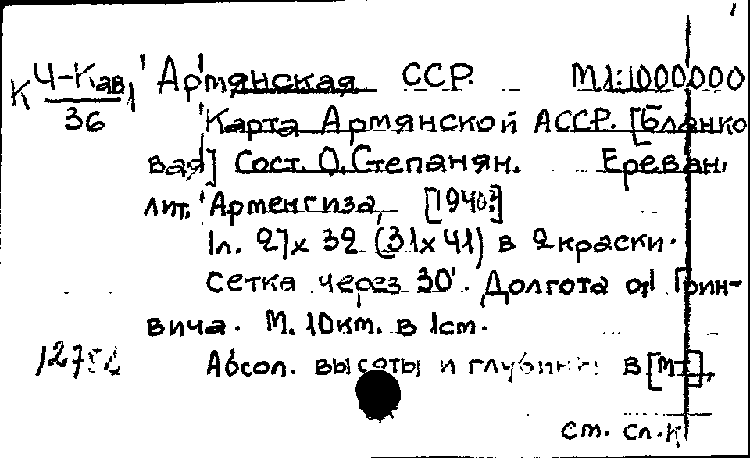 1
К Ч-Кав, Армянская ССР. М 1:1000000
36
Карта Армянской АССР. [Бланко
вая] Сост. О. Степанян. Ереван,
лит. Арменгиза, [1940?]
1л. 27х32 (31х41) в 2 краски.
Сетка через 30'. Долгота от Грин-
вича. М. 10км. в 1см.
Абсол. высоты и глубины в [М],
см. сл. К